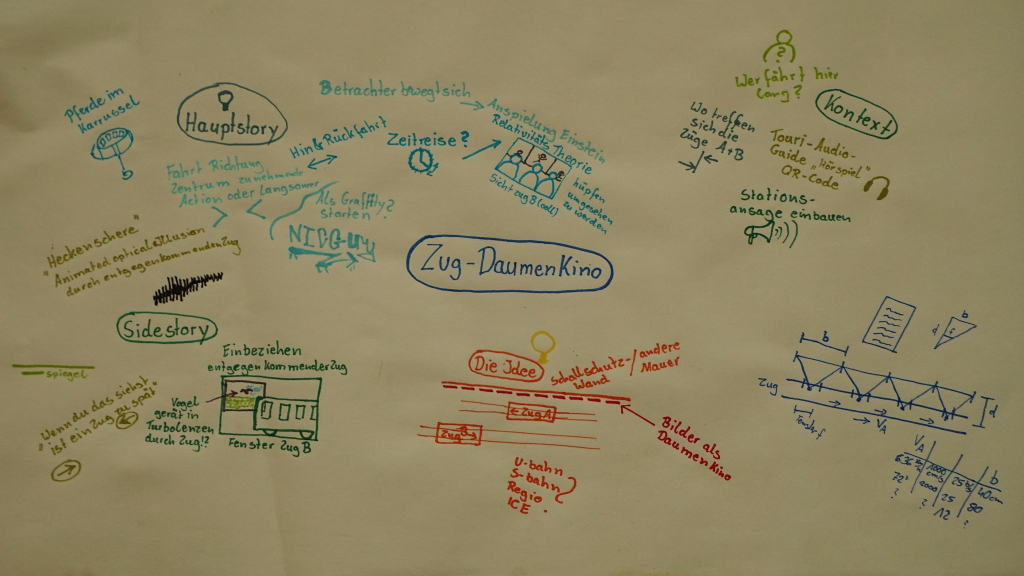 Zug-Daumenkino
Hauptstory
Pferde im
Karrussel
Betrachter bewegt sich
Hin & Rückfahrt
Zeitreise?
Anspielung Einstein
Relativitäts Theorie
Sicht aus B
hüpfen
umgesehen
zu werden
Fahrt Richtung
Zentrum zunehmende
Action oder langsamer
Als Graffity?
starten
Wer fährt hier
lang?
Kontext
Wo treffen
sich die
Züge A+B
Touri-Audio-
Guide „Hörspiel"
QR-Code
Stations-
ansage einbauen
„Heckenschere"
Animated optical illusion
durch entgegenkommenden Zug
Sidestory
Einbeziehen
entgegenkommender Zug
Vogel
gerät in
Turbolenzen
durch Zug!?
Fenster Zug B
spiegel
„Wenn du das siehst
ist ein Zug zu spät"
Die Idee
Schallschutz-/andere
Wand Mauer
← Zug A
Zug B →
Bilder als
Daumenkino
U-bahn
S-bahn
Regio
ICE
b
d
b
Zug
d
V_A
V_A b
1000 25 40cm
72 2000 25 80
? ? 12 ?